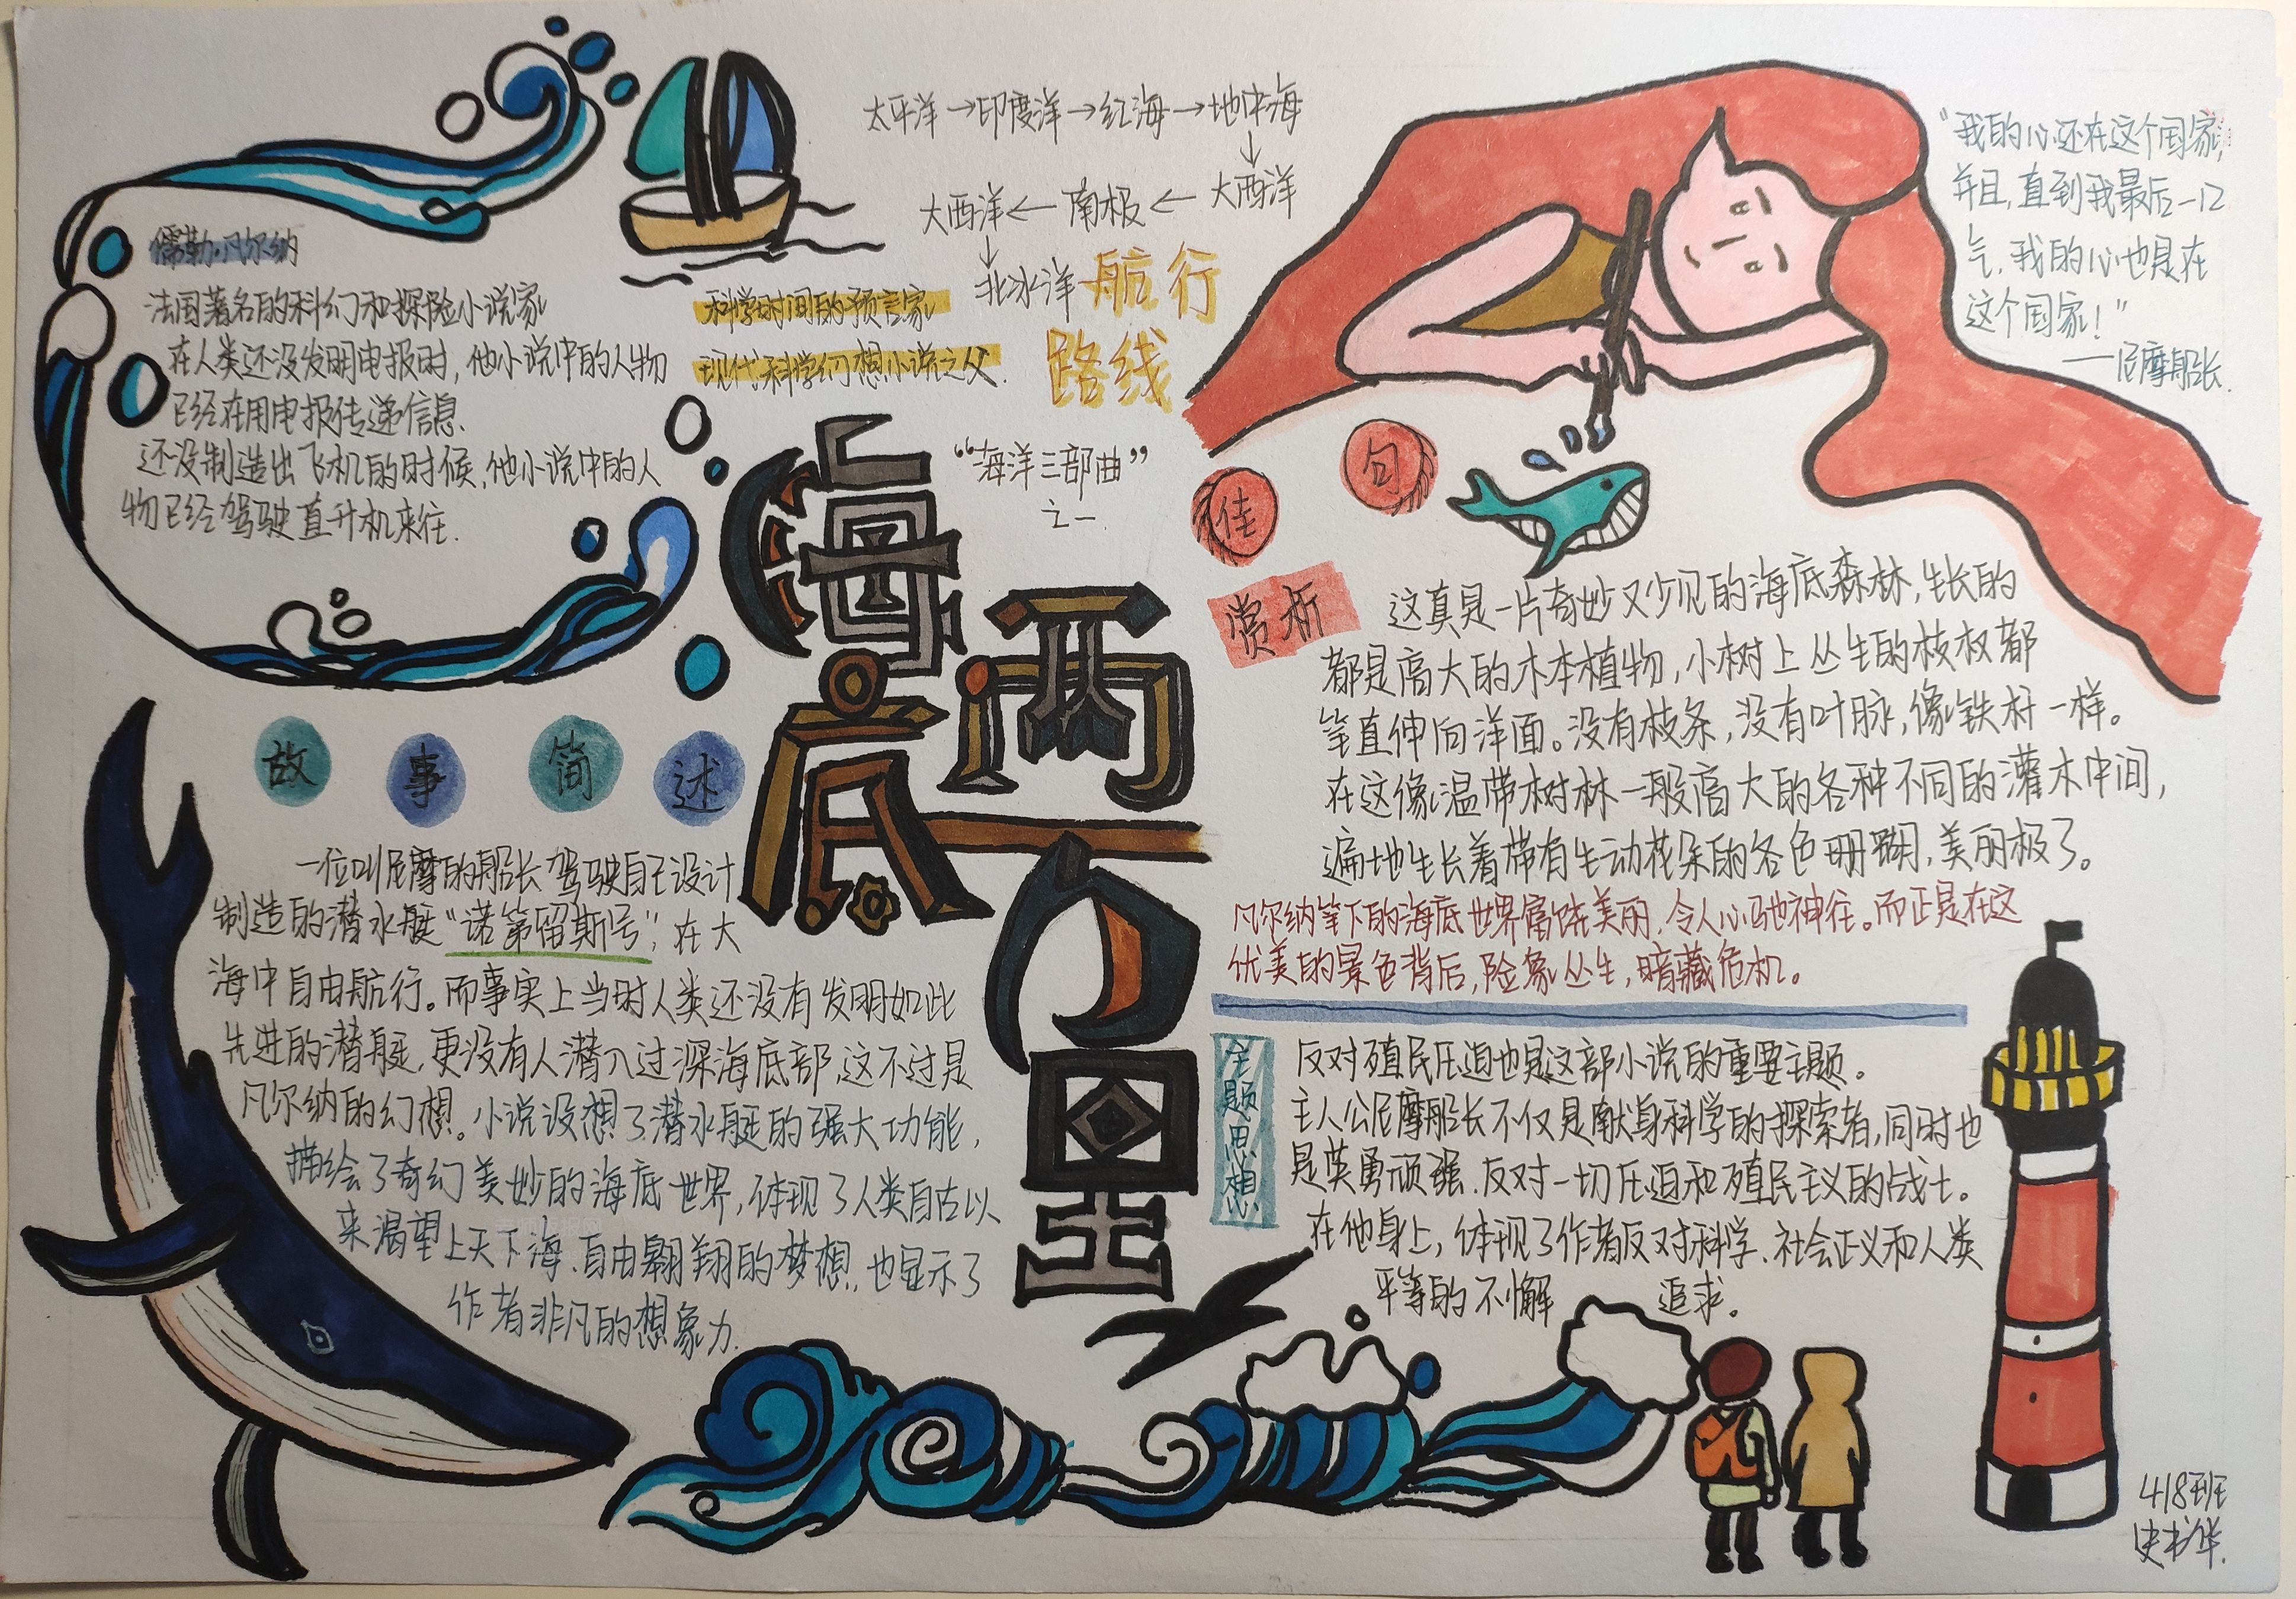 儒勒·凡尔纳
法国著名的科幻和探险小说家
在人类还没发明电报时，他小说中的人物
已经在用电报传递信息、
还没制造出飞机的时候，他小说中的人
物已经驾驶直升机来往.
科学时间的预言家
现代科学幻想小说之父.
太平洋→印度洋→红海→地中海
↓
大西洋←南极←大西洋
↓
北冰洋
航行
路线
“海洋三部曲”
之一
海底两万里
“我的心还在这个国家，
并且，直到我最后一口
气，我的心也是在
这个国家！”
——尼摩船长.
佳句
赏析
这真是一片奇妙又少见的海底森林，生长的
都是高大的木本植物，小树上丛生的枝杈都
笔直伸向洋面。没有枝条，没有叶脉，像铁杆一样。
在这像温带树林一般高大的各种不同的灌木中间，
遍地生长着带有生动花朵的各色珊瑚，美丽极了。
凡尔纳笔下的海底世界富饶美丽，令人心驰神往。而正是在这
优美的景色背后，险象丛生，暗藏危机。
故事简述
一位叫尼摩的船长驾驶自己设计
制造的潜水艇“诺第留斯号”，在大
海中自由航行。而事实上当时人类还没有发明如此
先进的潜艇，更没有人潜入过深海底部，这不过是
凡尔纳的幻想。小说设想了潜水艇的强大功能，
描绘了奇幻美妙的海底世界，体现了人类自古以
来渴望上天下海、自由翱翔的梦想，也显示了
作者非凡的想象力.
主题思想
反对殖民压迫也是这部小说的重要主题。
主人公尼摩船长不仅是献身科学的探索者，同时也
是英勇顽强、反对一切压迫和殖民主义的战士。
在他身上，体现了作者反对科学、社会正义和人类
平等的不懈追求。
418班
史书华.